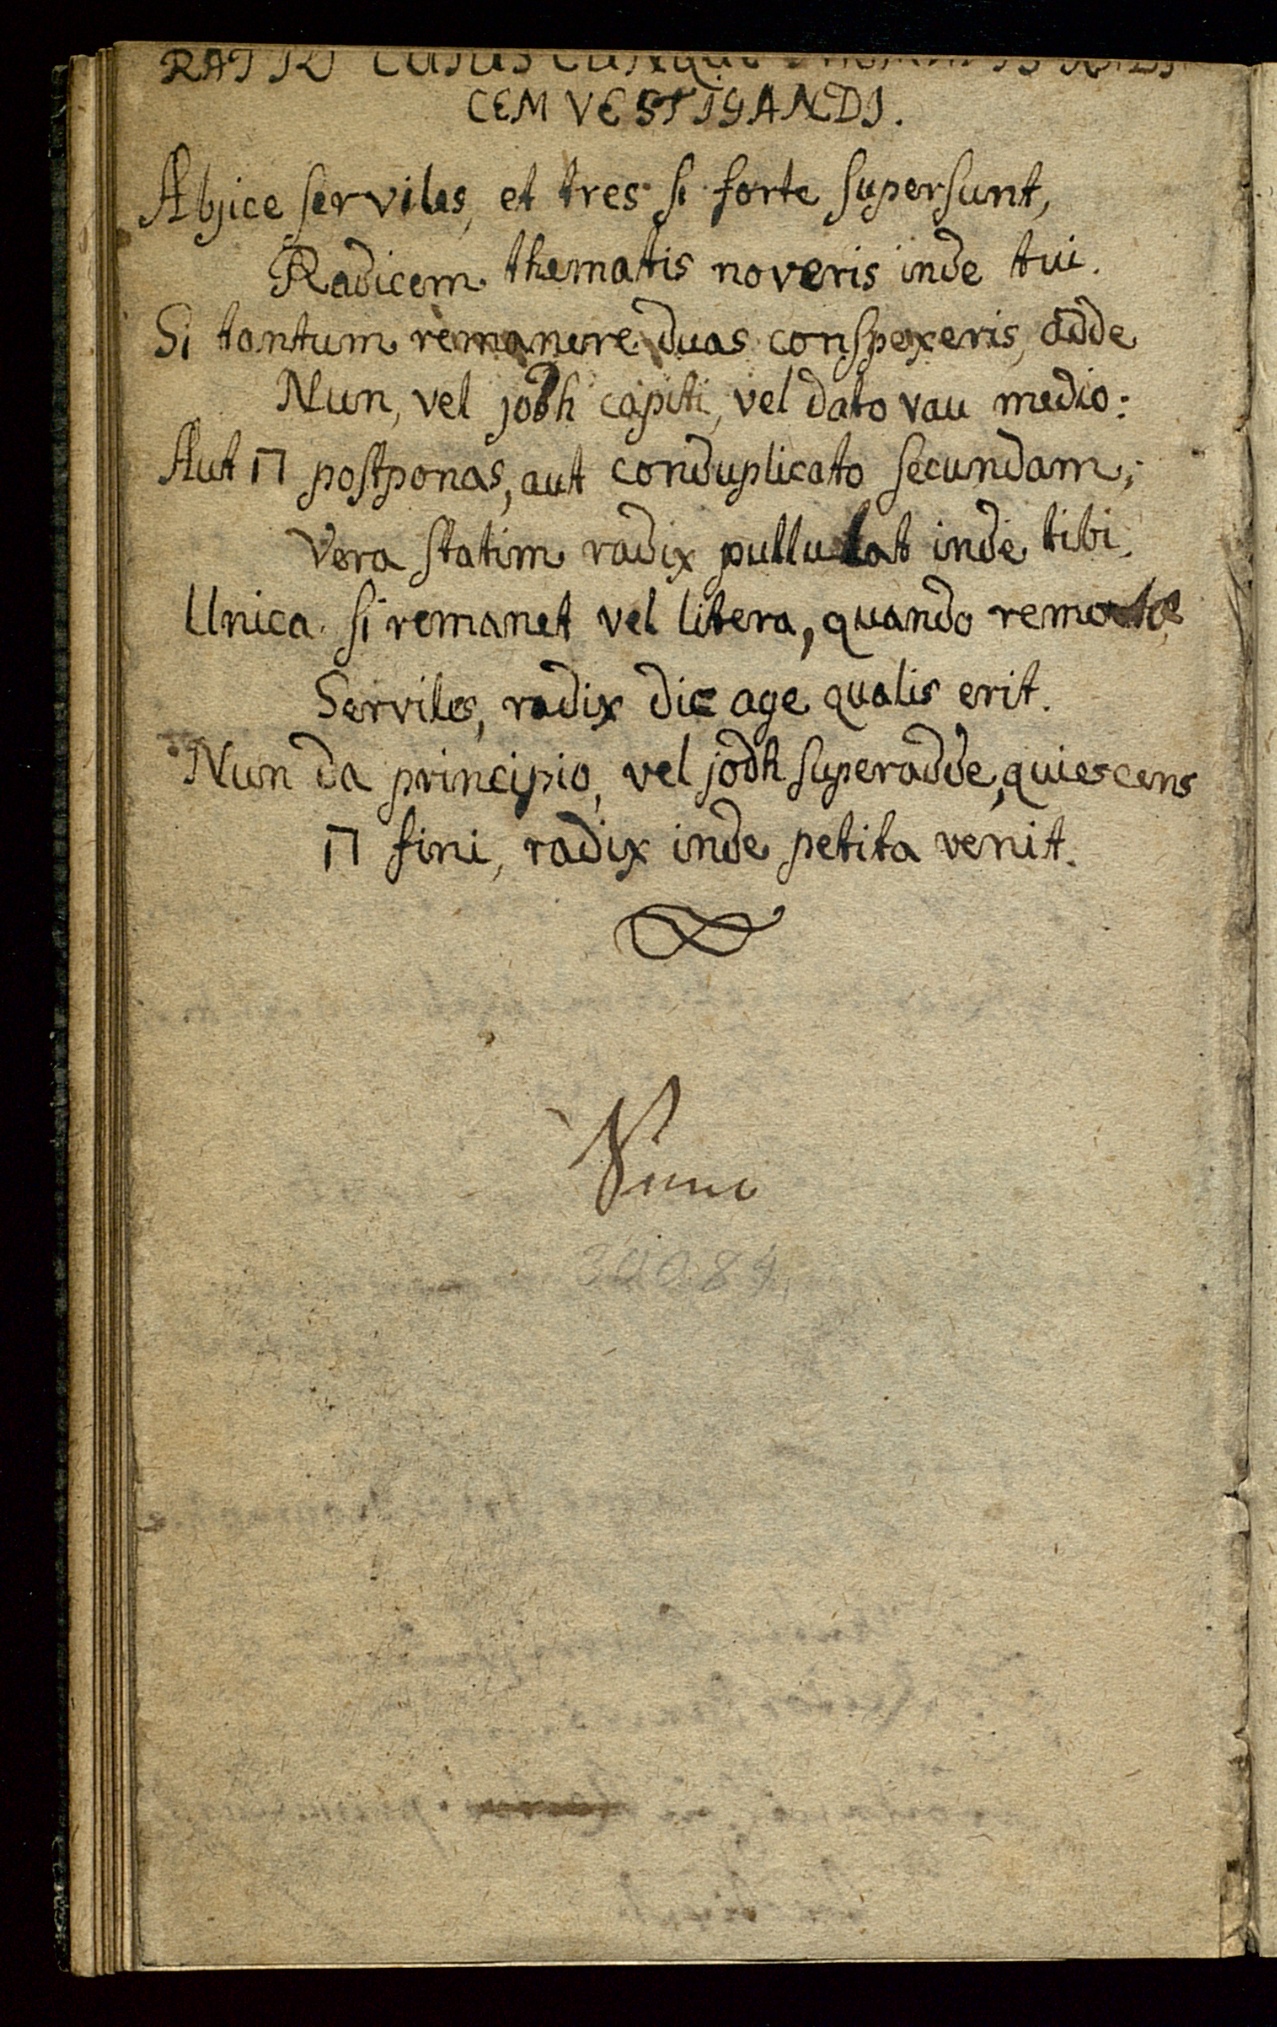 RATIO CUJUSCUNQUE THEMATIS RADI
CEM VESTIGANDI.
Abjice serviles, et tres si forte supersunt,
Radicem thematis noveris inde tui.
Si tantum remanere duas conspexeris, adde
Nun, vel jodh capiti, vel dato vau medio:
Aut ה postponas, aut conduplicato secundam;
Vera statim radix pullulat inde tibi.
Unica si remanet vel litera, quando remotæ
Serviles, radix dic age qualis erit.
Nun da principio, vel jodh superadde, quiescens
ה fini, radix inde petita venit.
30084